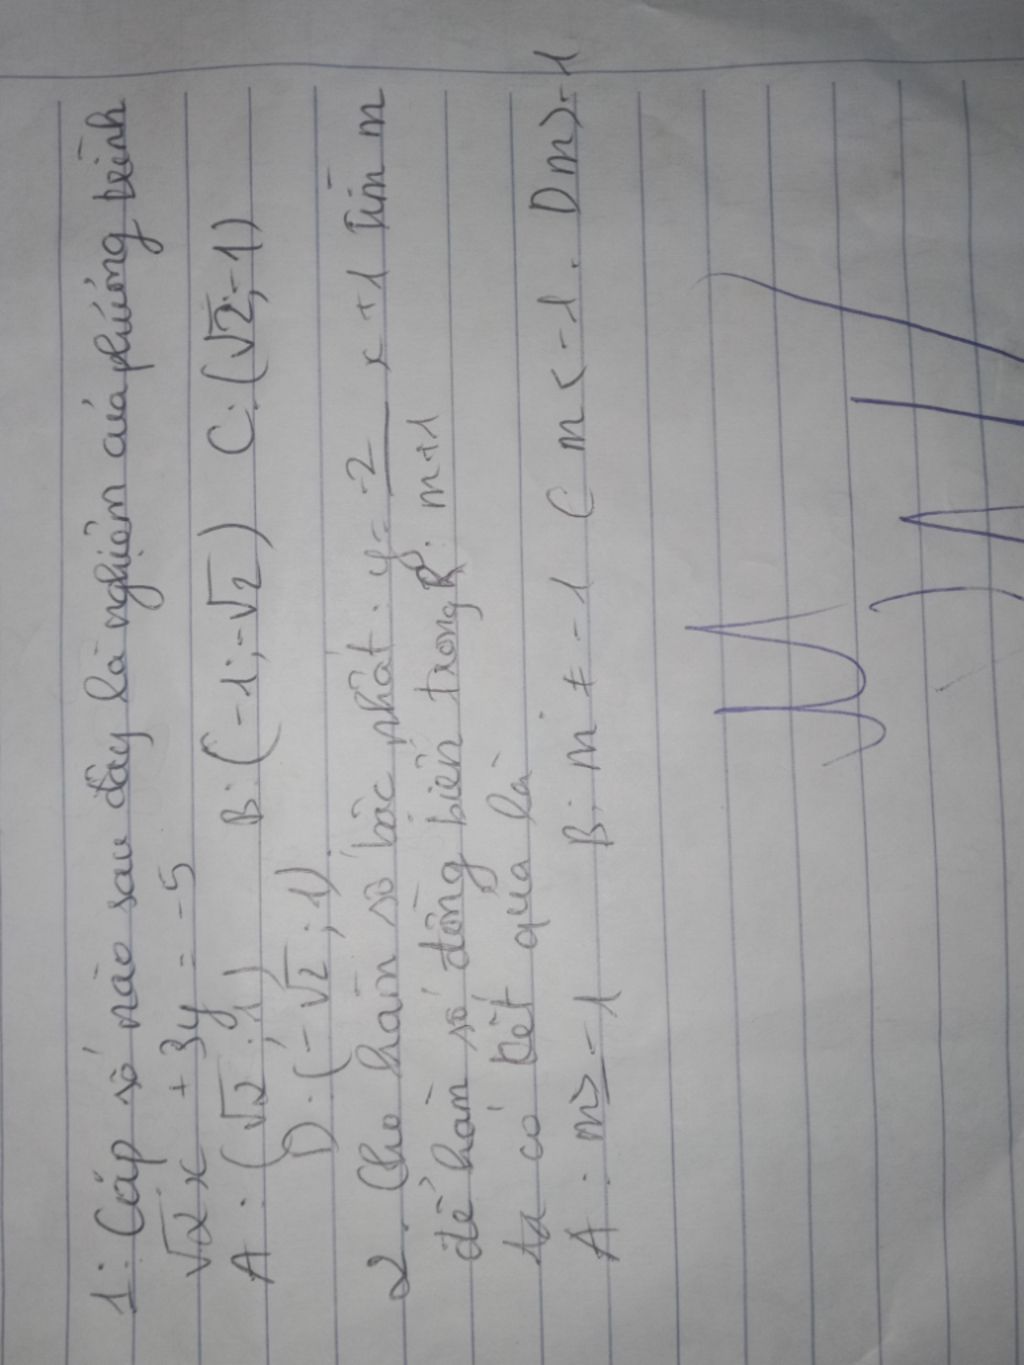 1: Cặp số nào sau đây là nghiệm của phương trình
√2x + 3y = -5
A: (√2; 1) B: (-1; -√2) C: (√2; -1)
D. (-√2; 1).
2. Cho hàm số bậc nhất. y = -2/(m+1) x + 1 Tìm m
để hàm số đồng biến trong R.
ta có kết quả là
A: m ≥ -1 B: m ≠ -1 C m < -1. D m > -1